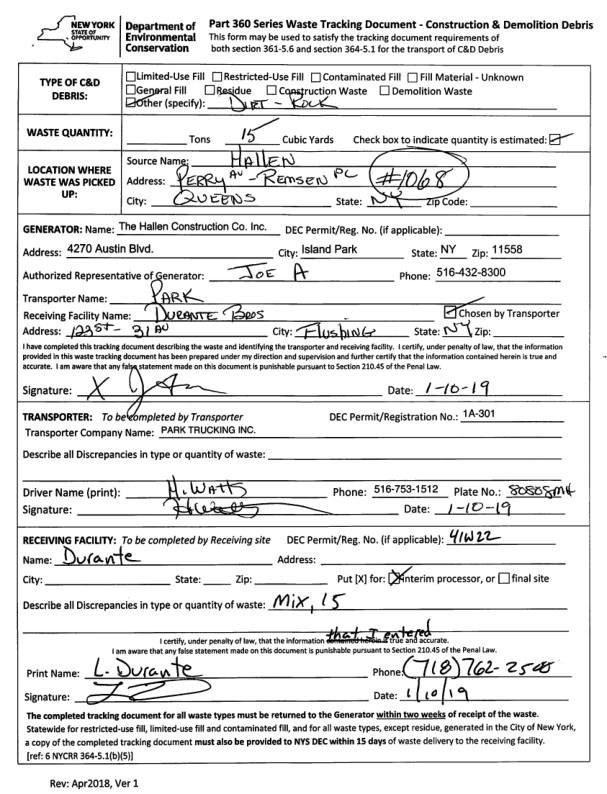 NEW YORK STATE OF OPPORTUNITY
Department of Environmental Conservation
Part 360 Series Waste Tracking Document - Construction & Demolition Debris
This form may be used to satisfy the tracking document requirements of
both section 361-5.6 and section 364-5.1 for the transport of C&D Debris
TYPE OF C&D DEBRIS:
☐Limited-Use Fill ☐Restricted-Use Fill ☐Contaminated Fill ☐Fill Material - Unknown
☐General Fill ☐Residue ☐Construction Waste ☐Demolition Waste
☑Other (specify): DIRT - ROCK
WASTE QUANTITY: Tons 15 Cubic Yards Check box to indicate quantity is estimated: ☑
LOCATION WHERE WASTE WAS PICKED UP:
Source Name: HALLEN
Address: PERRY AV - REMSEN PL #1068
City: QUEENS State: NY Zip Code:
GENERATOR: Name: The Hallen Construction Co. Inc. DEC Permit/Reg. No. (if applicable):
Address: 4270 Austin Blvd. City: Island Park State: NY Zip: 11558
Authorized Representative of Generator: JOE A Phone: 516-432-8300
Transporter Name: PARK
Receiving Facility Name: DURANTE BROS ☑Chosen by Transporter
Address: 123ST - 31 AV City: Flushing State: NY Zip:
I have completed this tracking document describing the waste and identifying the transporter and receiving facility. I certify, under penalty of law, that the information
provided in this waste tracking document has been prepared under my direction and supervision and further certify that the information contained herein is true and
accurate. I am aware that any false statement made on this document is punishable pursuant to Section 210.45 of the Penal Law.
Signature: X Date: 1-10-19
TRANSPORTER: To be completed by Transporter DEC Permit/Registration No.: 1A-301
Transporter Company Name: PARK TRUCKING INC.
Describe all Discrepancies in type or quantity of waste:
Driver Name (print): H. WATTS Phone: 516-753-1512 Plate No.: 80808MH
Signature: Date: 1-10-19
RECEIVING FACILITY: To be completed by Receiving site DEC Permit/Reg. No. (if applicable): 41W22
Name: Durante Address:
City: State: Zip: Put [X] for: ☒interim processor, or ☐final site
Describe all Discrepancies in type or quantity of waste: Mix, 15
that I entered
I certify, under penalty of law, that the information contained herein is true and accurate.
I am aware that any false statement made on this document is punishable pursuant to Section 210.45 of the Penal Law.
Print Name: L. Durante Phone: (718)762-2500
Signature: Date: 1/10/19
The completed tracking document for all waste types must be returned to the Generator within two weeks of receipt of the waste.
Statewide for restricted-use fill, limited-use fill and contaminated fill, and for all waste types, except residue, generated in the City of New York,
a copy of the completed tracking document must also be provided to NYS DEC within 15 days of waste delivery to the receiving facility.
[ref: 6 NYCRR 364-5.1(b)(5)]
Rev: Apr2018, Ver 1